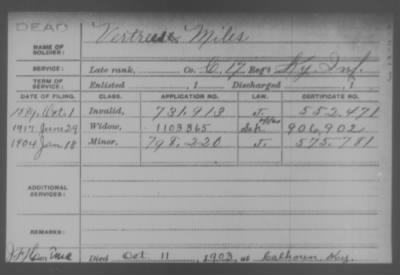 DEAD
NAME OF SOLDIER: Vertrees Miles
SERVICE: Late rank, Co. C, 17 Reg't Ky. Inf.
TERM OF SERVICE: Enlisted , 1 Discharged , 1
DATE OF FILING. CLASS. APPLICATION NO. LAW. CERTIFICATE NO.
Oct. 1 Invalid, 731,913 J. 552,471
1917 June 29 Widow, 1103365 906,902
1904 Jan 18 Minor, 798,220 J. 575,781
ADDITIONAL SERVICES:
REMARKS:
Died Oct 11, 1903, at Calhoun Ky.